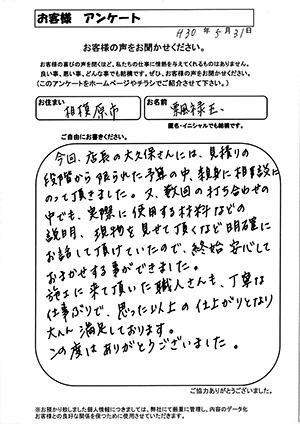 お客様 アンケート
H30年5月31日
お客様の声をお聞かせください。
お客様の喜びの声を聞くほど、私たちの仕事に情熱を与えてくれるものはありません。
良い事、悪い事、どんな事でも結構です。ぜひ、お客様の声をお聞かせください。
(このアンケートをホームページやチラシでご紹介させて下さい。)
お住まい
相模原市
お名前
匿名・イニシャルでも結構です。
ご自由にお書きください。
今回、店長の大久保さんには、見積りの
段階から限られた予算の中、親身に相談に
のって頂きました。又、数回の打ち合わせの
中でも、実際に使用する材料などの
説明、現物を見せて頂くなど明確に
お話して頂けていたので、終始安心して
おまかせする事ができました。
施工に来て頂いた職人さんも、丁寧な
仕事ぶりで、思った以上の仕上がりとなり
大へん満足しております。
この度はありがとうございました。
ご協力ありがとうございました。
※お預かり致しました個人情報につきましては、弊社にて厳重に管理し、内容のデータ化
お客様との良好な関係を保つために使用させていただきます。